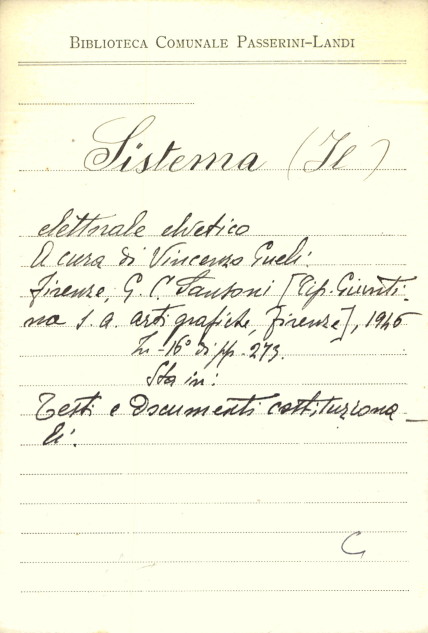 BIBLIOTECA COMUNALE PASSERINI-LANDI
Sistema (Il)
elettorale elvetico
A cura di Vincenzo Gueli
Firenze, G. C. Sansoni [Tip. Giunti-
na s. a. arti grafiche, Firenze], 1946
In-16° di pp. 273.
Sta in:
Testi e Documenti costituziona_
li.
C